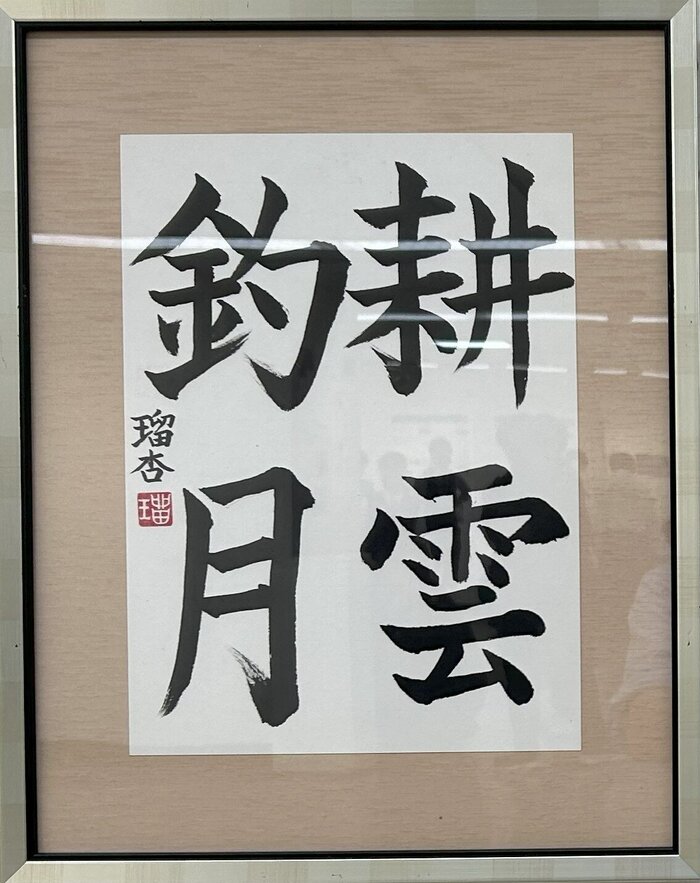 耕雲
釣月
瑠杏